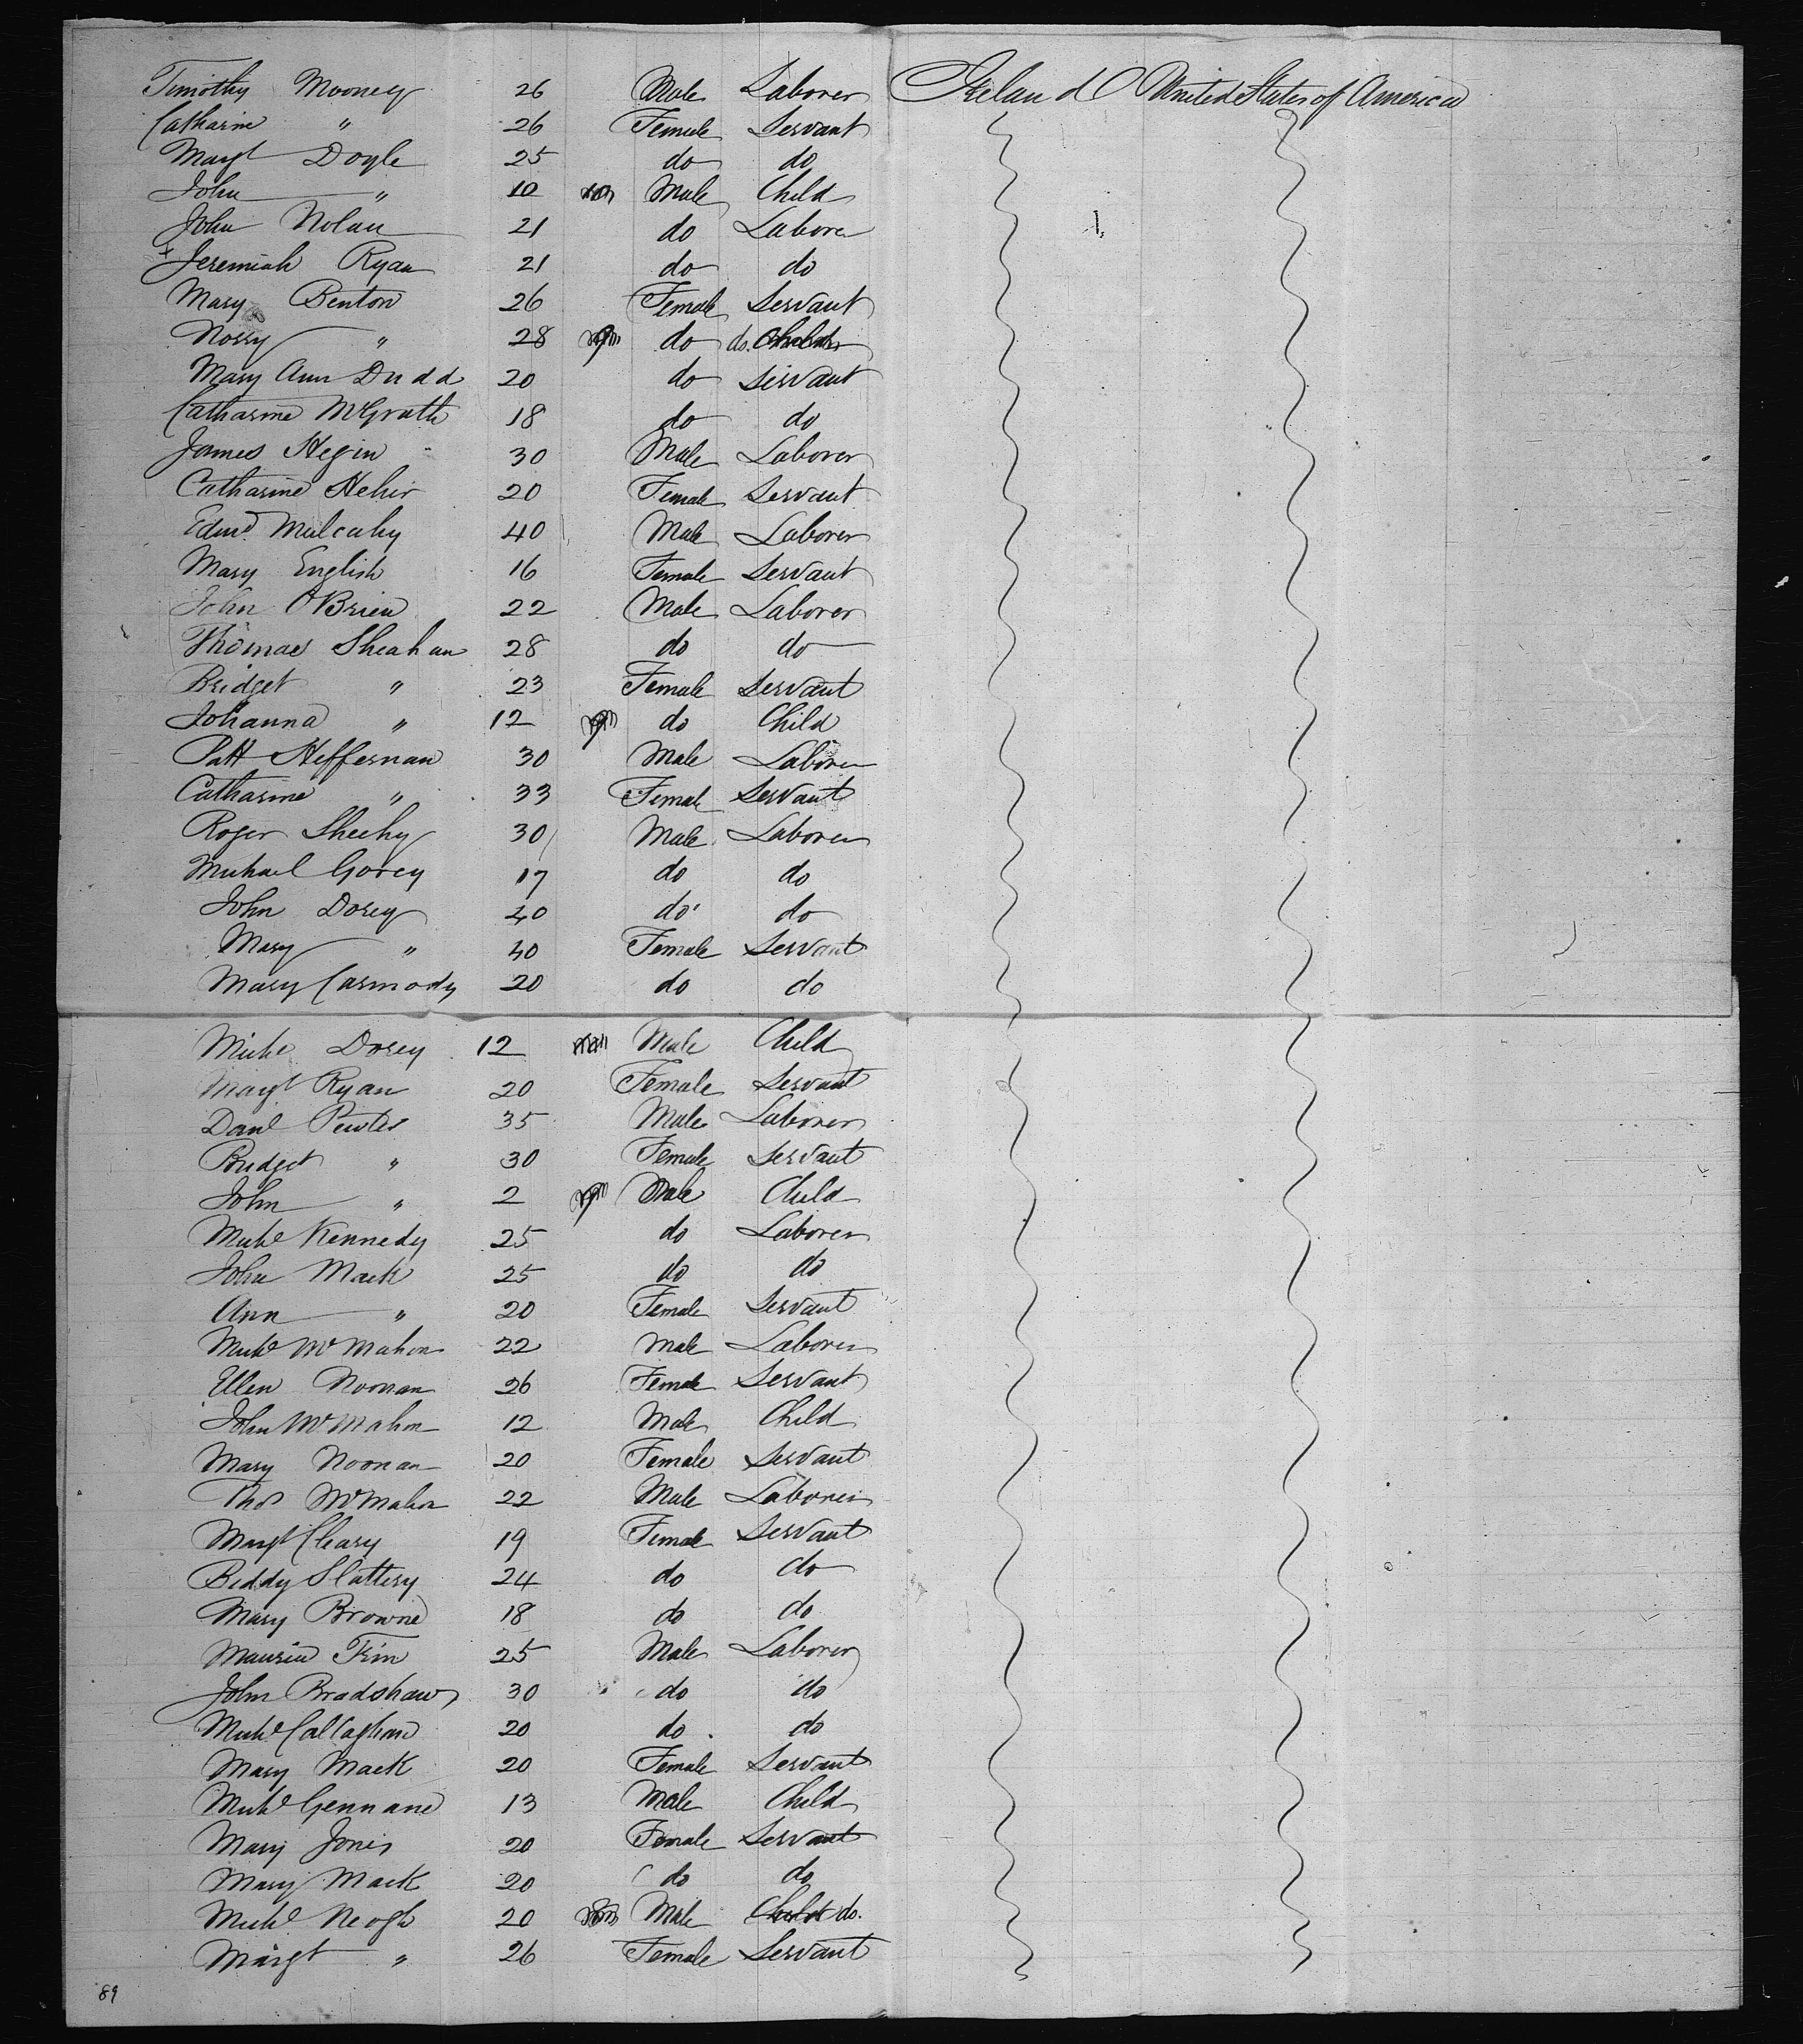 Timothy Mooney 26 Male Laborer Ireland United States of America
Catharine " 26 Female Servant
Margt Doyle 25 do do
John " 10 Male Child
John Nolan 21 do Laborer
+ Jeremiah Ryan 21 do do
Mary Benton 26 Female Servant
Nossy " 28 do do. Child
Mary Ann Dudd 20 do Servant
Catharine McGrath 18 do do
James Hegin 30 Male Laborer
Catharine Hehir 20 Female Servant
Edmd Mulcahy 40 Male Laborer
Mary English 16 Female Servant
John O'Brien 22 Male Laborer
Thomas Sheahan 28 do do
Bridget " 23 Female Servant
Johanna " 12 do Child
Patt Heffernan 30 Male Laborer
Catharine " 33 Female Servant
Roger Sheehy 30 Male Laborer
Michael Gorey 17 do do
John Dorey 40 do do
Mary " 40 Female Servant
Mary Carmody 20 do do
Michl Dorey 12 Male Child
Margt Ryan 20 Female Servant
Danl 35 Male Laborer
Bridget " 30 Female Servant
John " 2 Male Child
Michl Kennedy 25 do Laborer
John Mack 25 do do
Ann " 20 Female Servant
Michl McMahon 22 Male Laborer
Ellen Noonan 26 Female Servant
John McMahon 12 Male Child
Mary Noonan 20 Female Servant
Thos McMahon 22 Male Laborer
Margt Cleary 19 Female Servant
Biddy Slattery 24 do do
Mary Browne 18 do do
Maurice Finn 25 Male Laborer
John Bradshaw 30 do do
Michl Callaghan 20 do do
Mary Mack 20 Female Servant
Michl Gennane 13 Male Child
Mary Jones 20 Female Servant
Mary Mack 20 do do
Michl Neogh 20 Male Child do.
Margt " 26 Female Servant
89